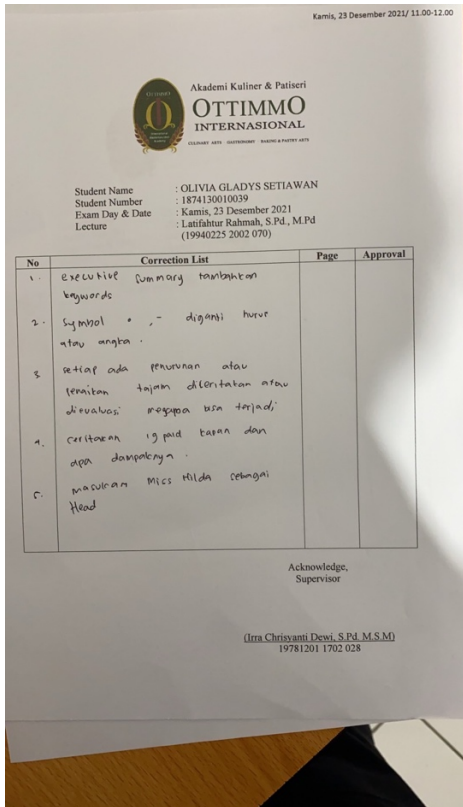 Kamis, 23 Desember 2021/ 11.00-12.00
Akademi Kuliner & Patiseri
OTTIMMO
INTERNASIONAL
CULINARY ARTS GASTRONOMY BAKING & PASTRY ARTS
Student Name : OLIVIA GLADYS SETIAWAN
Student Number : 1874130010039
Exam Day & Date : Kamis, 23 Desember 2021
Lecture : Latifahtur Rahmah, S.Pd., M.Pd
(19940225 2002 070)
No Correction List Page Approval
1. executive summary tambahkan
keywords
2. Symbol • , - diganti huruf
atau angka .
3 setiap ada penurunan atau
kenaikan tajam diceritakan atau
dievaluasi mengapa bisa terjadi
4. ceritakan ig paid kapan dan
apa dampaknya .
5. masukkan Miss Hilda sebagai
Head
Acknowledge,
Supervisor
(Irra Chrisyanti Dewi, S.Pd. M.S.M)
19781201 1702 028